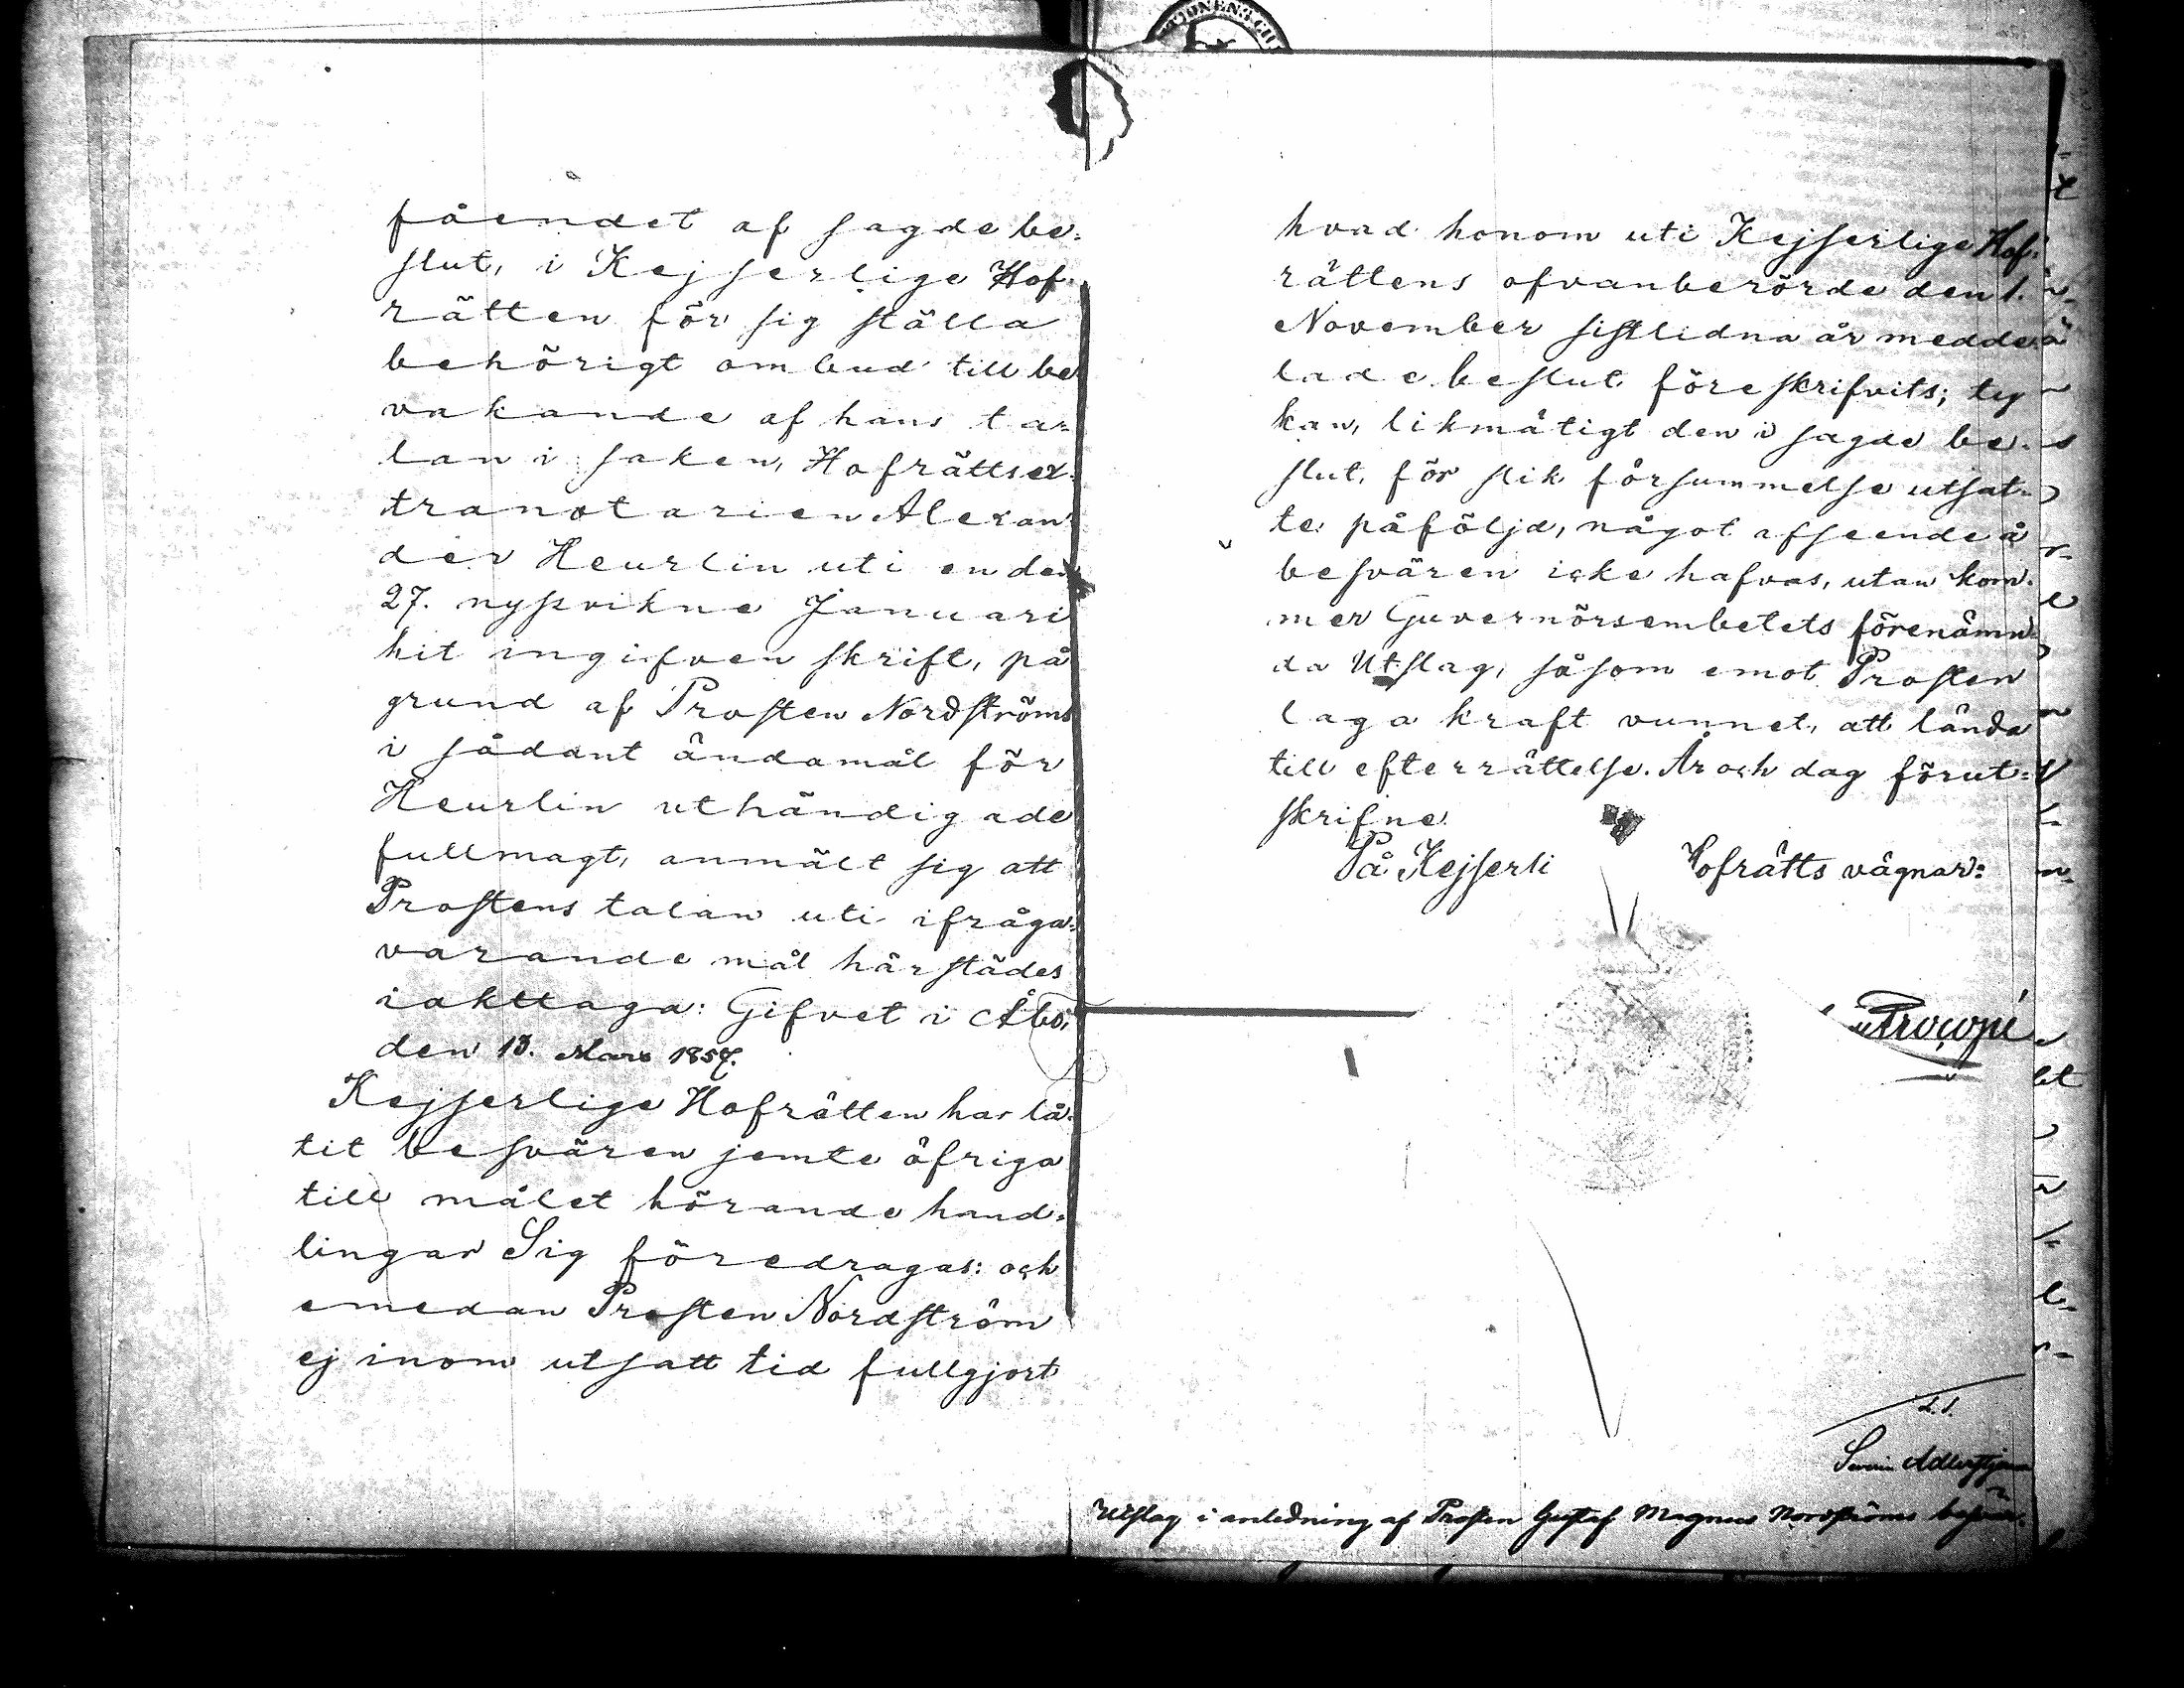 fåendet af sagde be-
slut, i Kejserlige Hof-
rätten för sig ställa
behörigt ombud till be-
vakande af hans ta-
lan i saken, Hofrättsex-
tranotarien Alexan-
der Heurlin uti en den
27. nyssvikne Januari
hit ingifven skrift, på
grund af Prosten Nordströms
i sådant ändamål för
Heurlin uthändigade
fullmagt, anmält sig att
Prostens talan uti ifråga-
varande mål härstädes
iakttaga: Gifvet i Åbo,
den 13. Mars 1857.
Kejserlige Hofrätten har lå-
tit besvären jemte öfriga
till målet hörande hand-
lingar Sig föredragas: och
emedan Prosten Nordström
ej inom utsatt tid fullgjort
hvad honom uti Kejserlige Hof-
rättens ofvanberörde den 1.
November sistlidna år medde-
lade beslut föreskrifvits; ty
kan, likmätigt den i sagde be-
slut, för slik försummelse utsat-
te påföljd, något afseende å
besvären icke hafvas, utan kom-
mer Guvernörsembetets förenämn-
da Utslag, såsom emot Prosten
laga kraft vunnet, att lända
till efterrättelse. År och dag förut-
skrifne.
På Kejserli Hofrätts vägnar:
Procopé
Utslag i anledning af Prosten Gustaf Magnus Nordströms besvär.